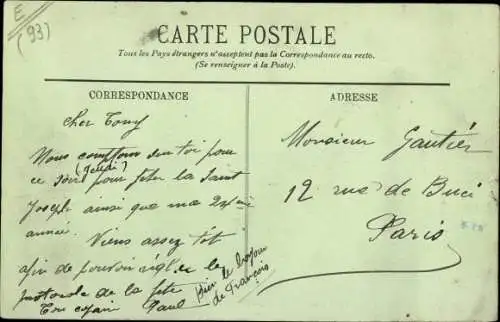 E
(93)
CARTE POSTALE
Tous les Pays étrangers n'acceptent pas la Correspondance au recto.
(Se renseigner à la Poste).
CORRESPONDANCE
ADRESSE
Cher Tony
Nous comptons sur toi pour
(jeudi)
ce soir pour fêter la Saint
Joseph ainsi que ma
année. Viens assez tôt
afin de pouvoir régler le
de la fête
Ton copain Paul
Bien le bonjour
de François
Monsieur Gautier
12 rue de Buci
Paris